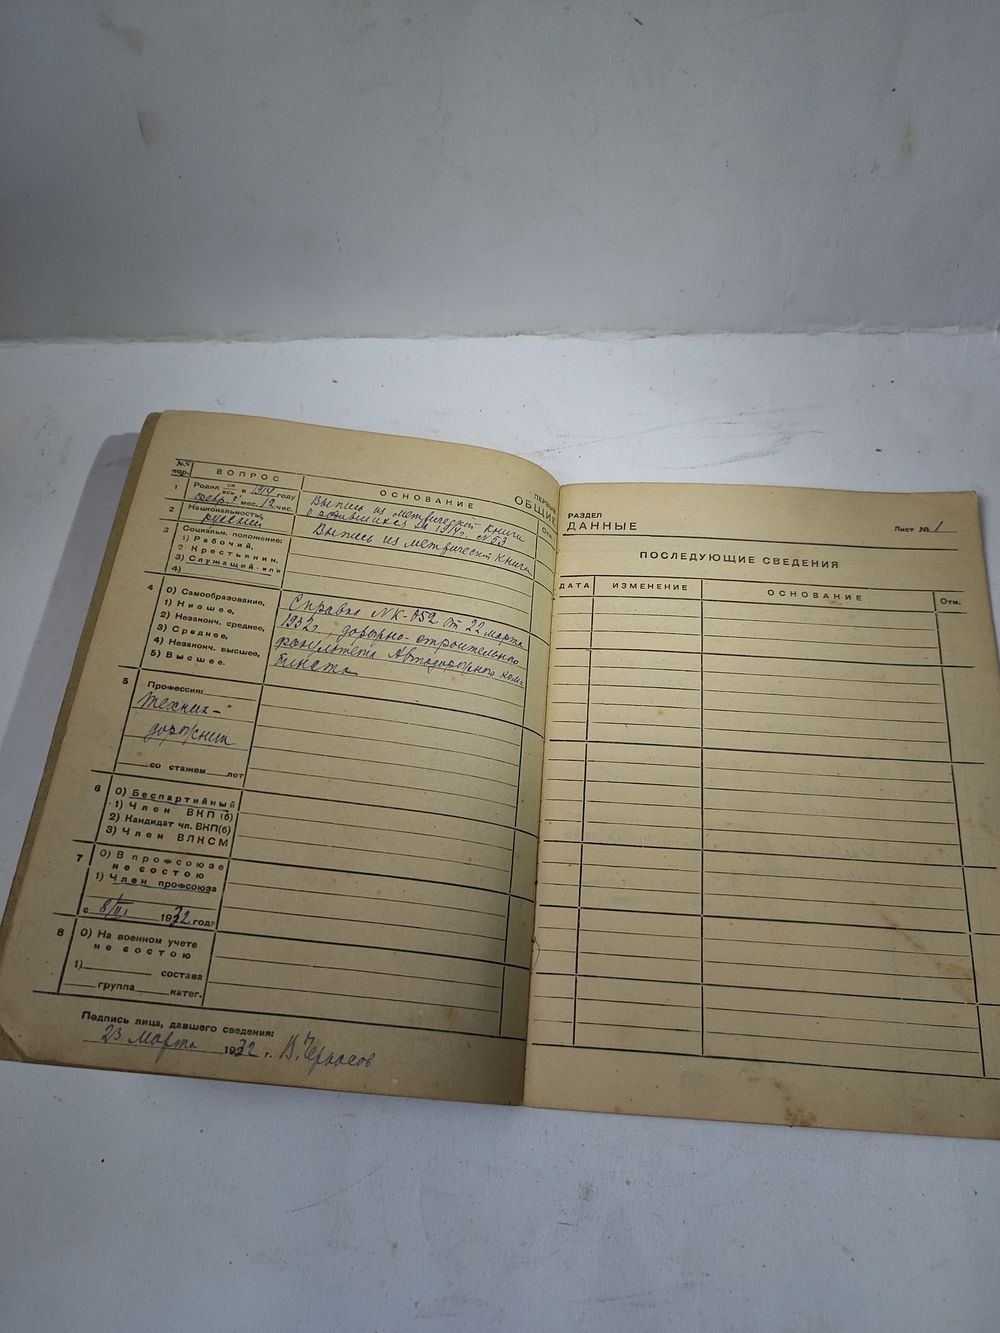 №№ пор.
ВОПРОС
ОСНОВАНИЕ
ПЕРВЫЙ
ОБЩИЕ
Отм.
1
Родил ся ась в 1914 году
февр. мес. 12 чис.
Выпись из метрической книги
родившихся за 1914 г. №53
2
Национальность,
русский
Выпись из метрической книги
3
Социальн. положение:
1) Рабочий,
2 Крестьянин,
3) Служащий или
4)
4
0) Самообразование,
1) Низшее,
2) Незаконч. среднее,
3) Среднее,
4) Незаконч. высшее,
5) Высшее.
Справка NK-052 от 22 марта
1932 г. дорожно-строительного
факультета Автодорожного ком-
бината
5
Профессия:
Техник-
дорожник
со стажем лет
6
0) Беспартийный
1) Член ВКП (б)
2) Кандидат чл. ВКП(б)
3) Член ВЛКСМ
7
0) В профсоюзе
не состою
1) Член профсоюза
с 8/III 1932 год
8
0) На военном учете
не состою
1) состава
группа катег.
Подпись лица, давшего сведения:
23 марта 1932 г. В. Черкасов
РАЗДЕЛ
ДАННЫЕ
Лист № 1
ПОСЛЕДУЮЩИЕ СВЕДЕНИЯ
ДАТА
ИЗМЕНЕНИЕ
ОСНОВАНИЕ
Отм.